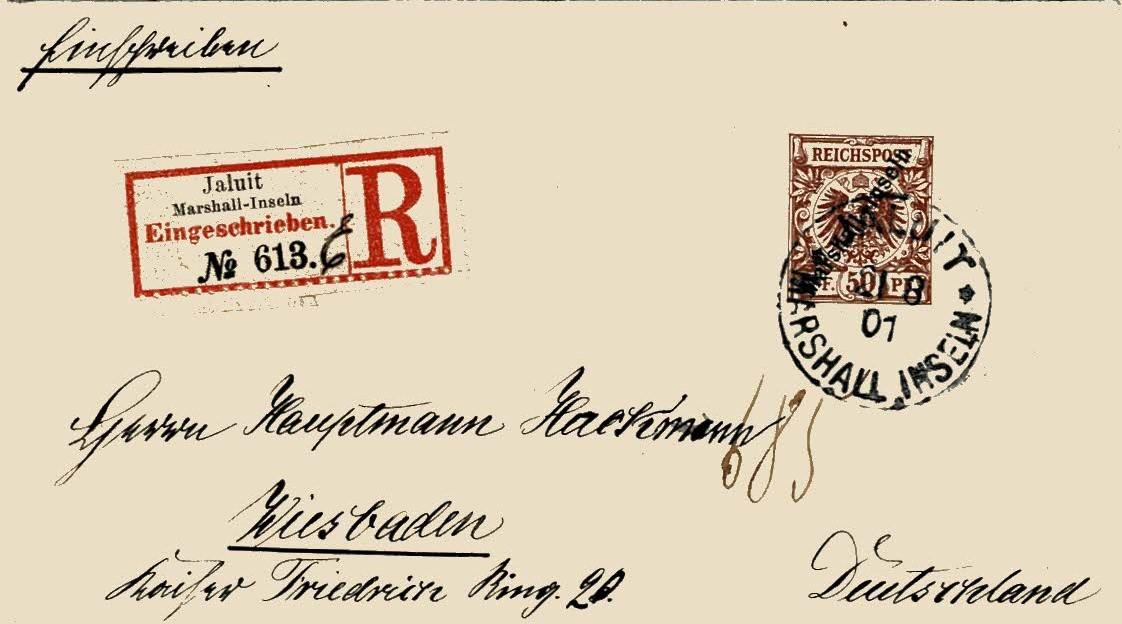 Einschreiben
Jaluit
Marshall-Inseln
Eingeschrieben.
№ 613.
R
REICHSPOST
Marshall-Inseln
PF. 50 PF.
JALUIT
8
01
MARSHALL INSELN
Herrn Hauptmann Hackmann
685
Wiesbaden
Kaiser Friedrich Ring.
Deutschland